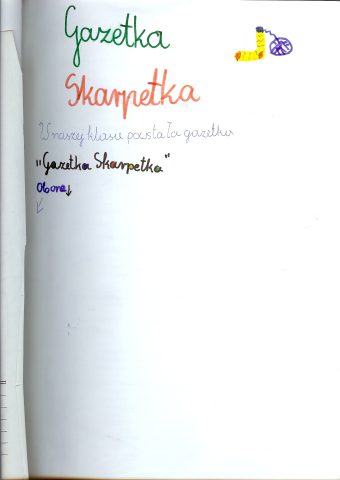 Gazetka
Skarpetka
W naszej klasie powstała gazetka
"Gazetka Skarpetka"